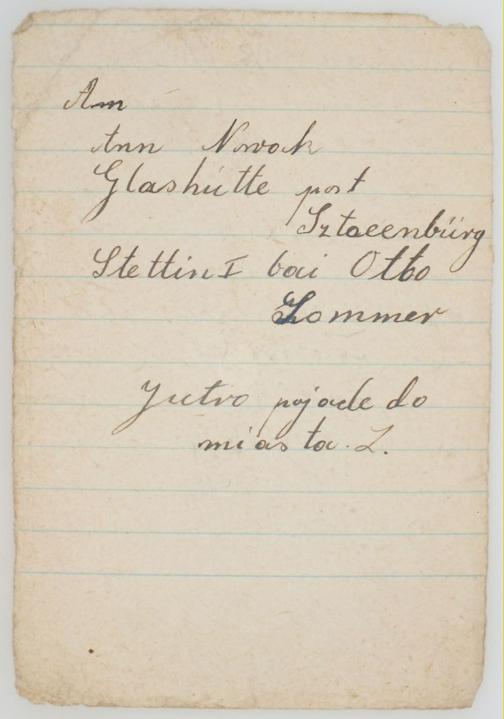 Am
Ann Nowak
Glashütte post
Sztoeenbürg
Stettin I bai Otto
Zommer
Jutro pojade do
miasta. Z.